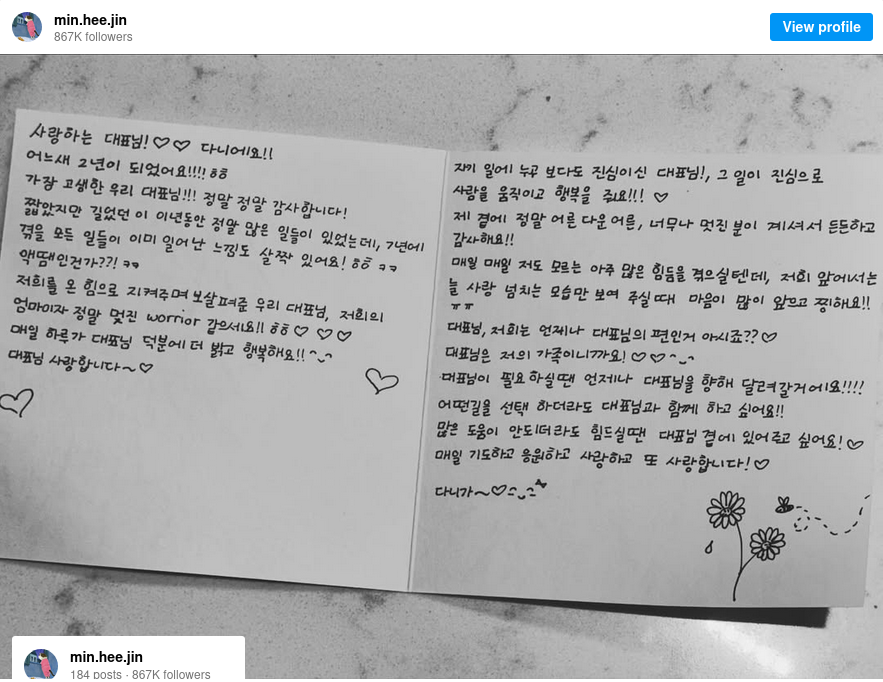 min.hee.jin
867K followers
View profile
사랑하는 대표님! ♡♡ 다니에요!!
어느새 2년이 되었어요!!!! ㅎㅎ
가장 고생한 우리 대표님!!! 정말 정말 감사합니다!
짧았지만 길었던 이 이년동안 정말 많은 일들이 있었는데, 7년에
겪을 모든 일들이 이미 일어난 느낌도 살짝 있어요! ㅎㅎ ㅋㅋ
액땜인건가??! ㅋㅋ
저희를 온 힘으로 지켜주며 보살펴준 우리 대표님, 저희의
엄마이자 정말 멋진 worrior 같으세요!! ㅎㅎ ♡ ♡ ♡
매일 하루가 대표님 덕분에 더 밝고 행복해요!! ^~^
대표님 사랑합니다~ ♡
자기 일에 누구 보다도 진심이신 대표님!, 그 일이 진심으로
사람을 움직이고 행복을 줘요!!! ♡
제 곁에 정말 어른 다운 어른, 너무나 멋진 분이 계셔서 든든하고
감사해요!!
매일 매일 저도 모르는 아주 많은 힘듦을 겪으실텐데, 저희 앞에서는
늘 사랑 넘치는 모습만 보여 주실 때 마음이 많이 아프고 찡해요!!
ㅠㅠ
대표님, 저희는 언제나 대표님의 편인거 아시죠?? ♡
대표님은 저의 가족이니까요! ♡♡ ^~^
대표님이 필요하실땐 언제나 대표님을 향해 달려갈거에요!!!!
어떤길을 선택 하더라도 대표님과 함께 하고 싶어요!!
많은 도움이 안되더라도 힘드실땐 대표님 곁에 있어주고 싶어요! ♡
매일 기도하고 응원하고 사랑하고 또 사랑합니다! ♡
다니가~♡
min.hee.jin
184 posts · 867K followers